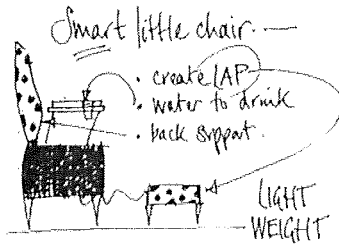 Smart little chair. —
• create LAP
• water to drink
• back support.
LIGHT
WEIGHT